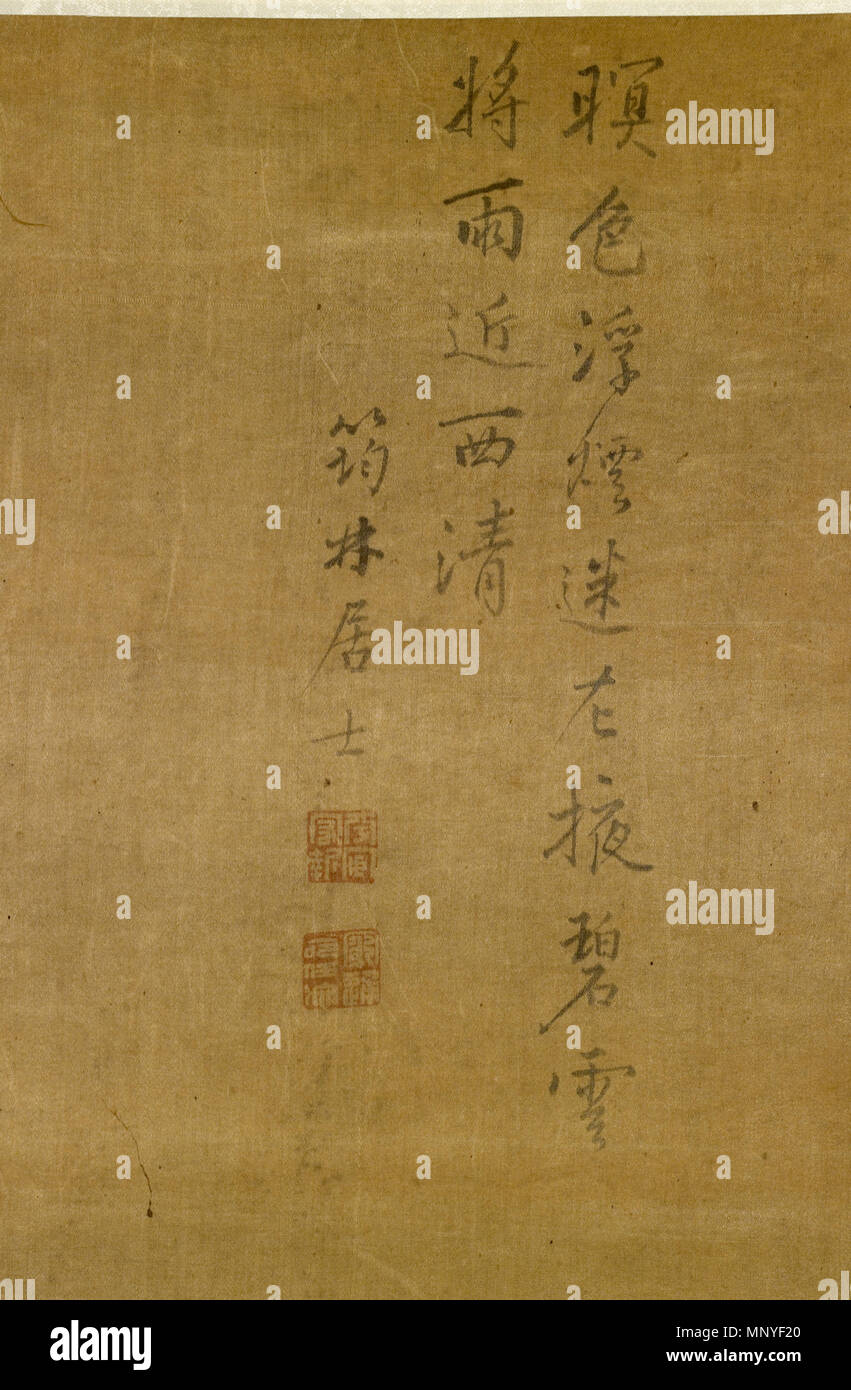 暝色浮煙迷左掖碧雲
將雨近西清
筠林居士
alamy
Image ID: MNYF20
www.alamy.com